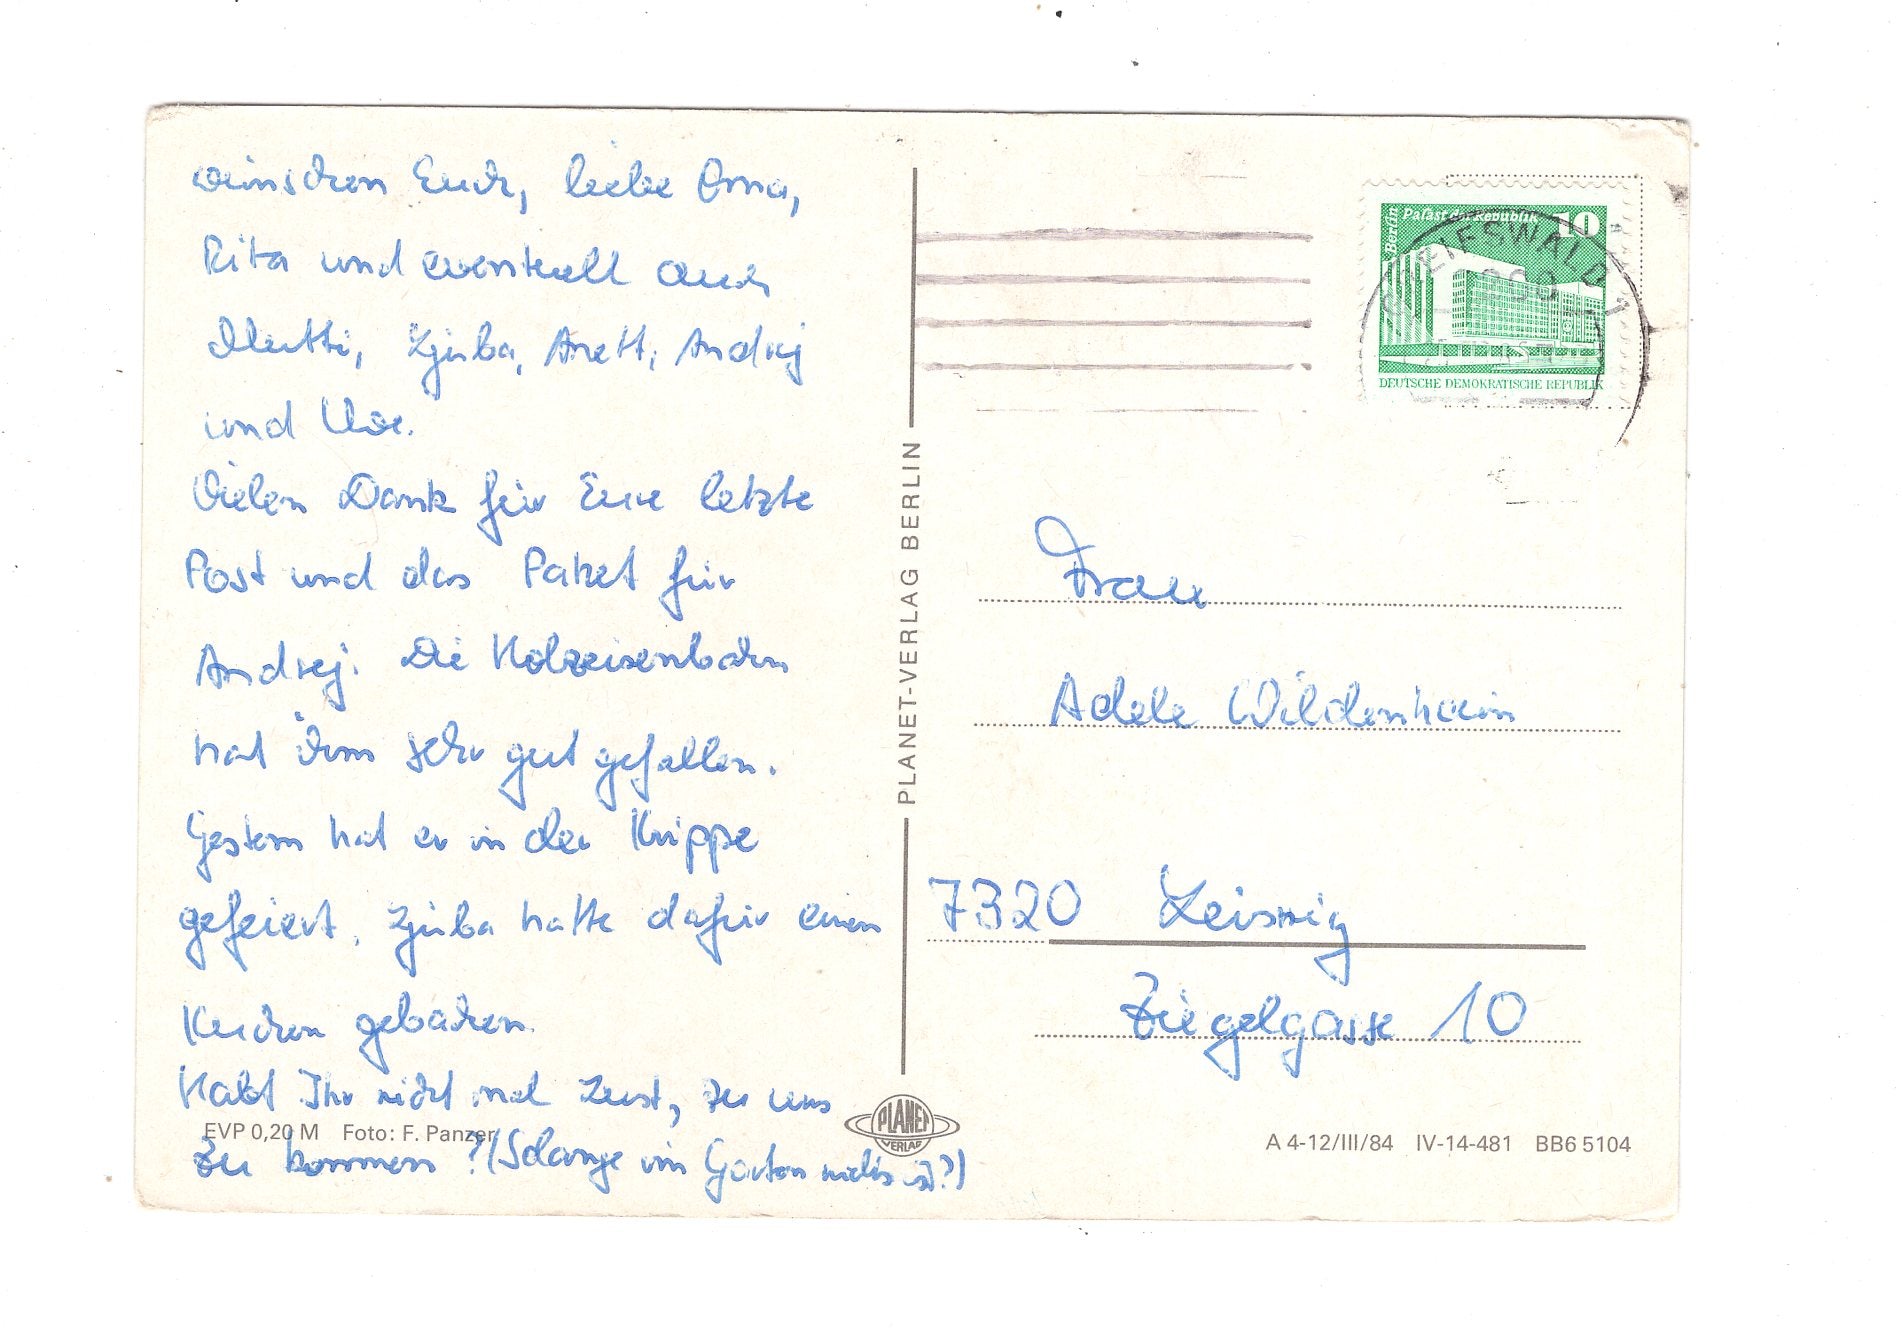 wünschen Euch, liebe Oma,
Rita und eventuell auch
Mutti, Ljuba, Anett, Andrej
und Uwe.
Vielen Dank für Eure letzte
Post und das Paket für
Andrej. Die Holzeisenbahn
hat ihm sehr gut gefallen.
Gestern hat er in der Krippe
gefeiert, Ljuba hatte dafür einen
Kuchen gebacken.
Habt Ihr nicht mal Lust, zu uns
zu kommen? (Solange im Garten nichts ist?)
EVP 0,20 M Foto: F. Panzer
PLANET-VERLAG BERLIN
PLANET
VERLAG
Berlin
Palast der Republik 10
DEUTSCHE DEMOKRATISCHE REPUBLIK
GREIFSWALD 1
Frau
Adele Wildenhain
7320 Leisnig
Ziegelgasse 10
A 4-12/III/84 IV-14-481 BB6 5104